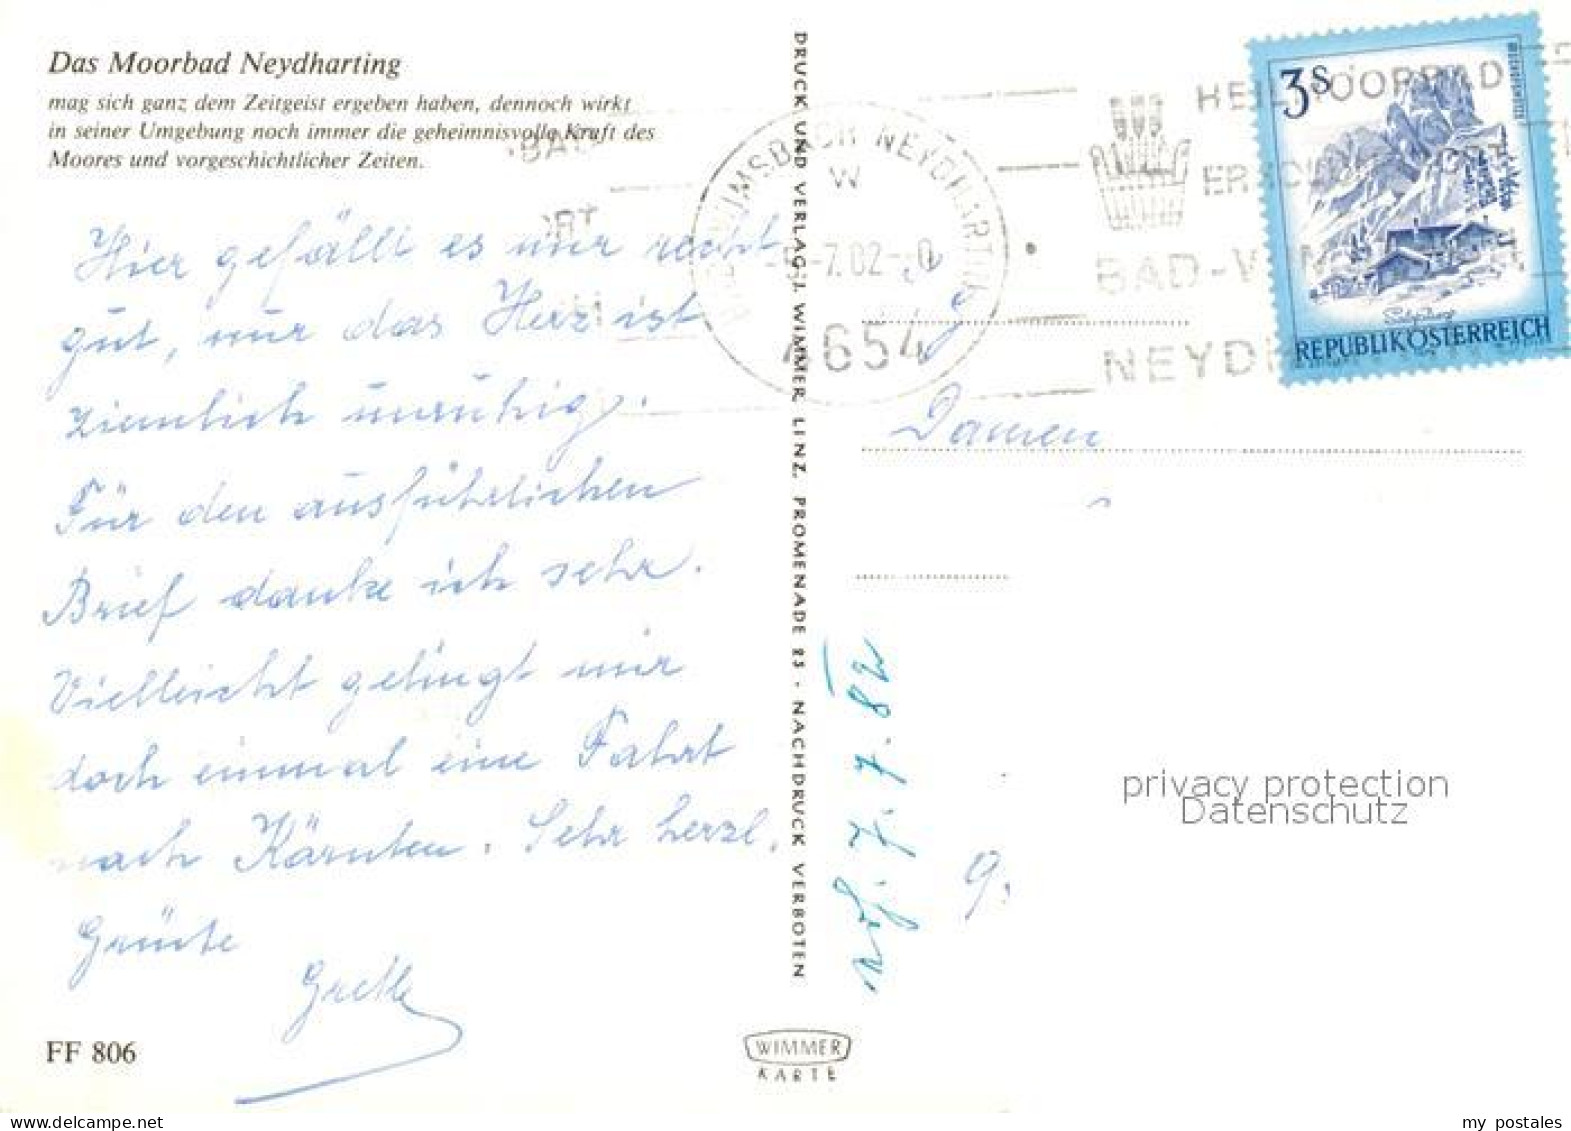 Das Moorbad Neydharting
mag sich ganz dem Zeitgeist ergeben haben, dennoch wirkt
in seiner Umgebung noch immer die geheimnisvolle Kraft des
Moores und vorgeschichtlicher Zeiten.
Hier gefällt es mir recht
gut, nur das Herz ist
ziemlich unruhig.
Für den ausführlichen
Brief danke ich sehr.
Vielleicht gelingt mir
doch einmal eine Fahrt
nach Kärnten. Sehr herzl.
Grüße
Grete
FF 806
DRUCK UND VERLAG J. WIMMER, LINZ, PROMENADE 23 · NACHDRUCK VERBOTEN
WIMMER
KARTE
NEYDHARTING
W
-7.82-
4654
BAD-
3S
REPUBLIK ÖSTERREICH
Damen
7.7.82
privacy protection
Datenschutz
my postales
www.delcampe.net